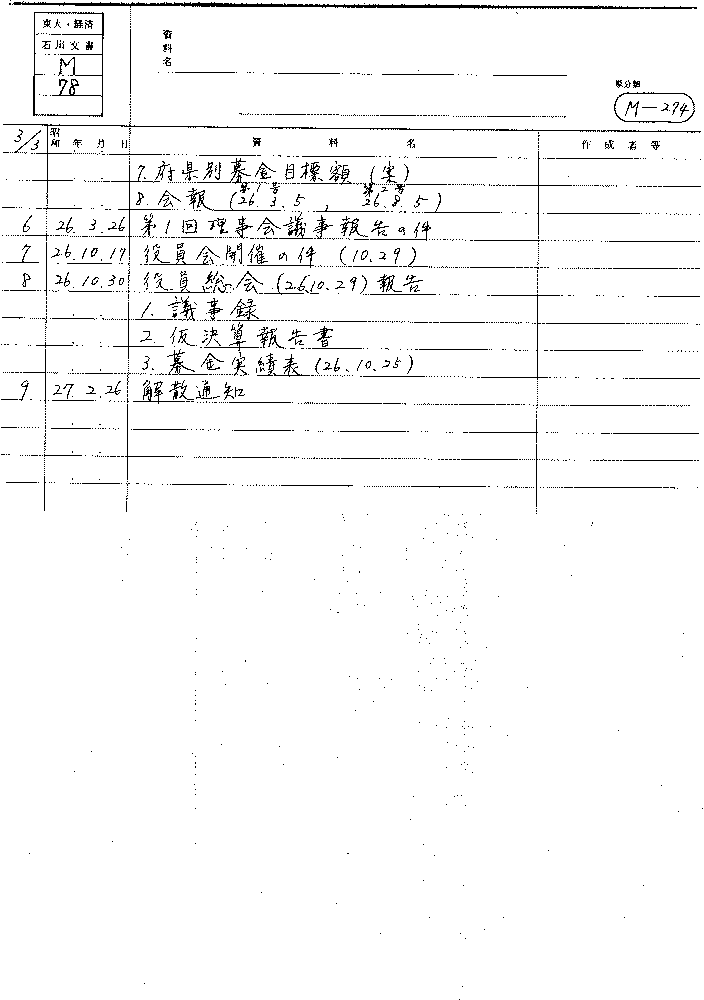 東大・経済
石川文書
M
78
資料名
原分類
M-274
3/3 昭和 年 月 日 資料名 作成者等
7. 府県別募金目標額 (案)
第1号 第2号
8. 会報 (26. 3. 5 , 26. 8. 5)
6 26. 3. 26 第1回理事会議事報告の件
7 26. 10. 17 役員会開催の件 (10. 29)
8 26. 10. 30 役員総会 (26. 10. 29) 報告
1. 議事録
2. 仮決算報告書
3. 募金実績表 (26. 10. 25)
9 27. 2. 26 解散通知